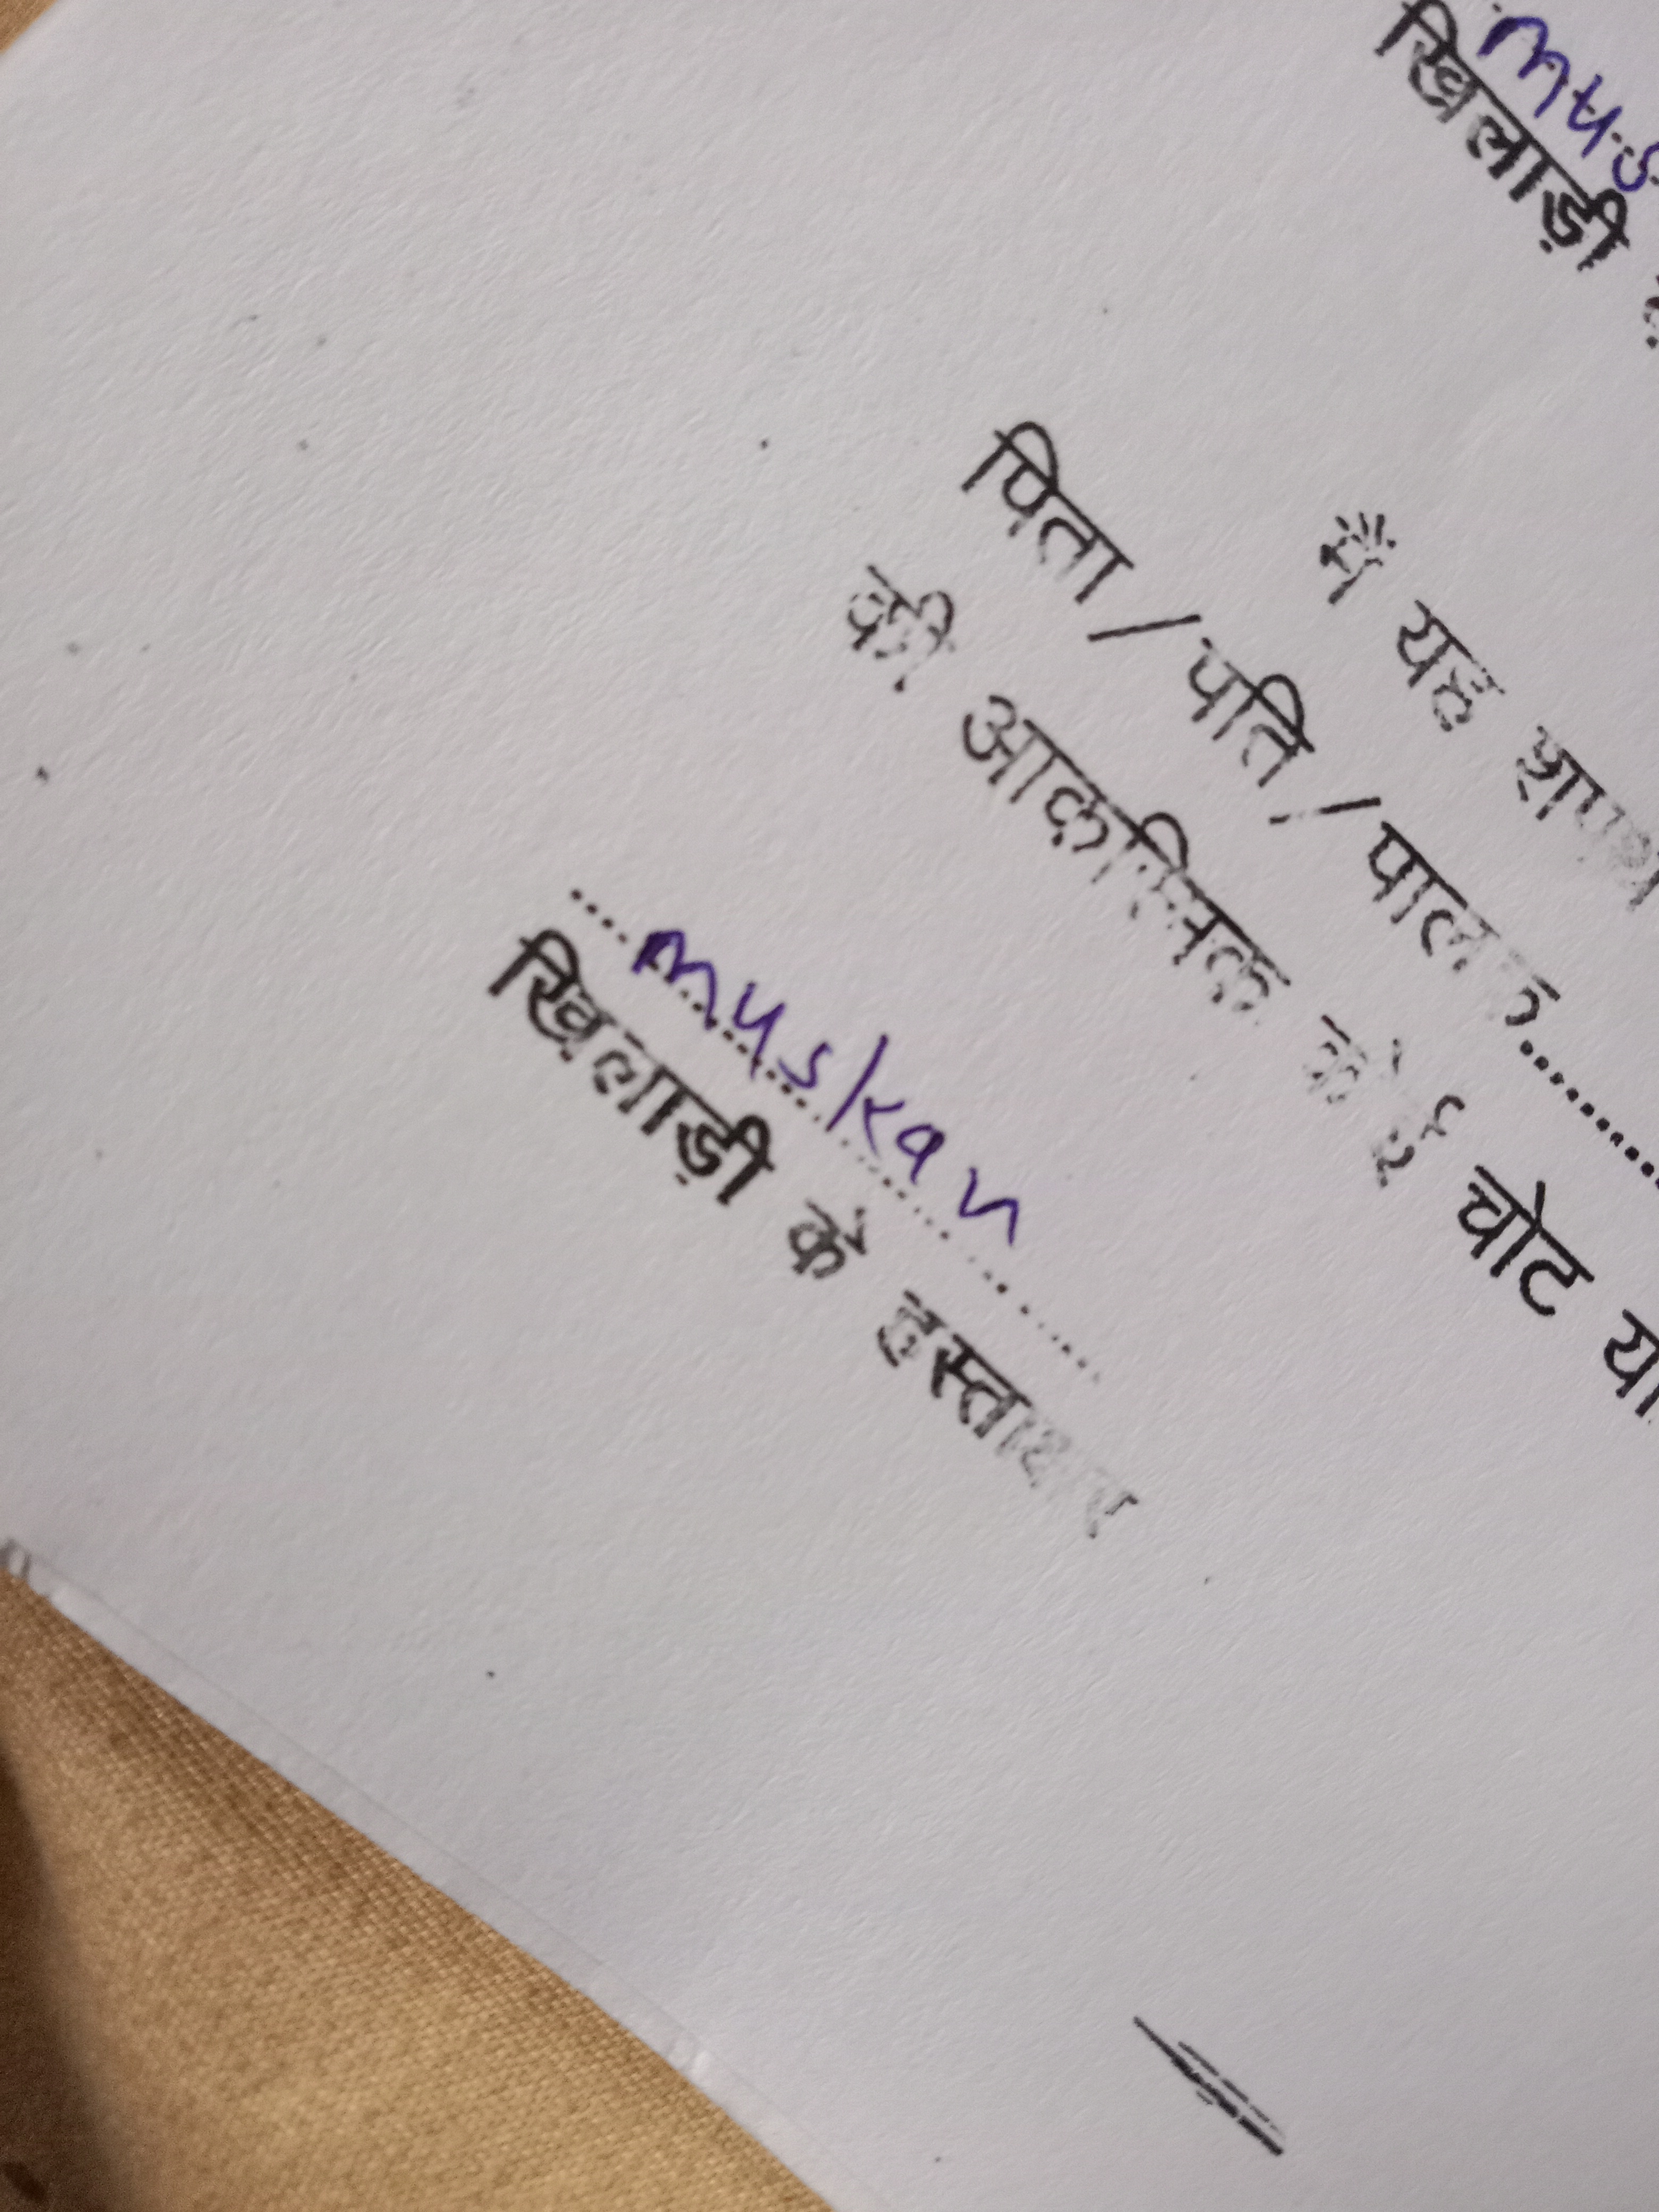 mus
खिलाड़ी
मैं यह शपथ
पिता / पति / पालक..........
की आकस्मिक कोई चोट या
muskan
खिलाड़ी के हस्ताक्षर